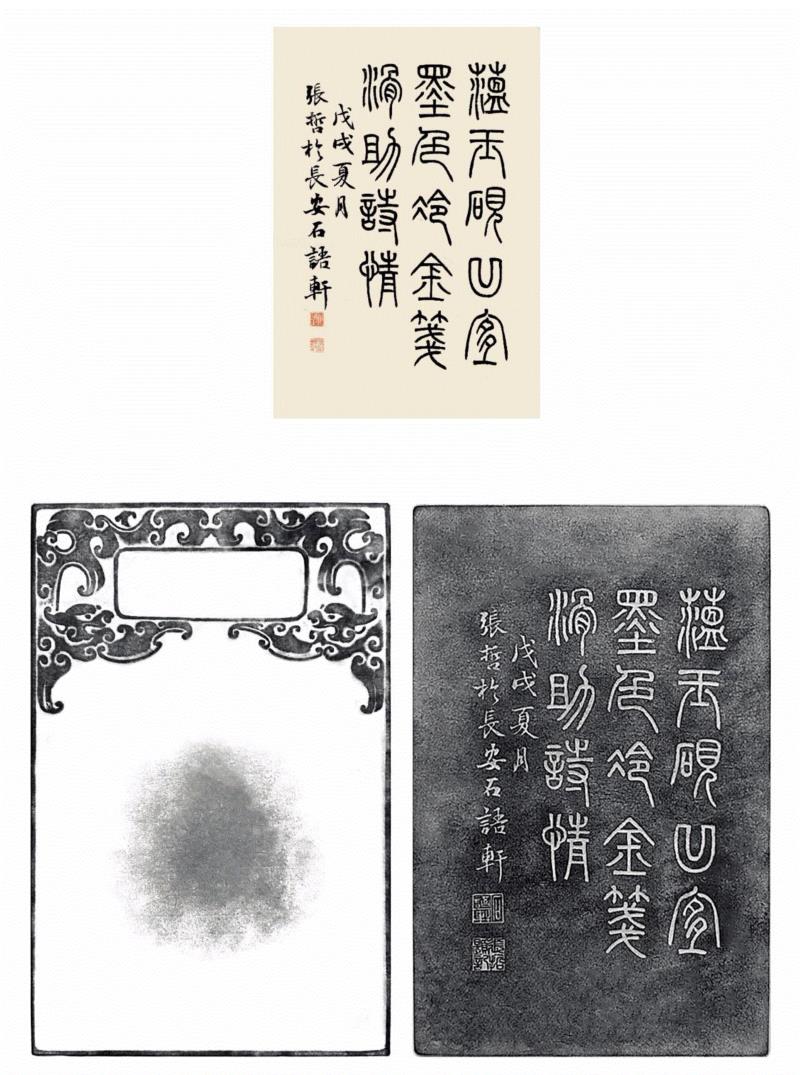 薀玉硯凹宜
墨色冷金箋
滑助詩情
戊戌夏月
張哲於長安石語軒
薀玉硯凹宜
墨色冷金箋
滑助詩情
戊戌夏月
張哲於長安石語軒